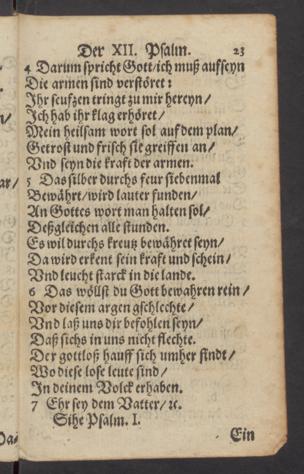 Der XII. Psalm. 23
4 Darum spricht Gott/ ich muß auf seyn
Die armen sind verstöret:
Ihr seufzen tringt zu mir hereyn/
Ich hab ihr klag erhöret/
Mein heilsam wort sol auf dem plan/
Getrost und frisch sie greiffen an/
Vnd seyn die kraft der armen.
5 Das silber durchs feur siebenmal
Bewährt/ wird lauter funden/
An Gottes wort man halten sol/
Deßgleichen alle stunden.
Es wil durchs kreutz bewähret seyn/
Da wird erkent sein kraft und schein/
Vnd leucht starck in die lande.
6 Das wöllst du Gott bewahren rein/
Vor diesem argen gschlechte/
Vnd laß uns dir befohlen seyn/
Daß sichs in uns nicht flechte.
Der gottloß hauff sich umher findt/
Wo diese lose leute sind/
In deinem Volck erhaben.
7 Ehr sey dem Vatter/ ꝛc.
Sihe Psalm. I.
Ein